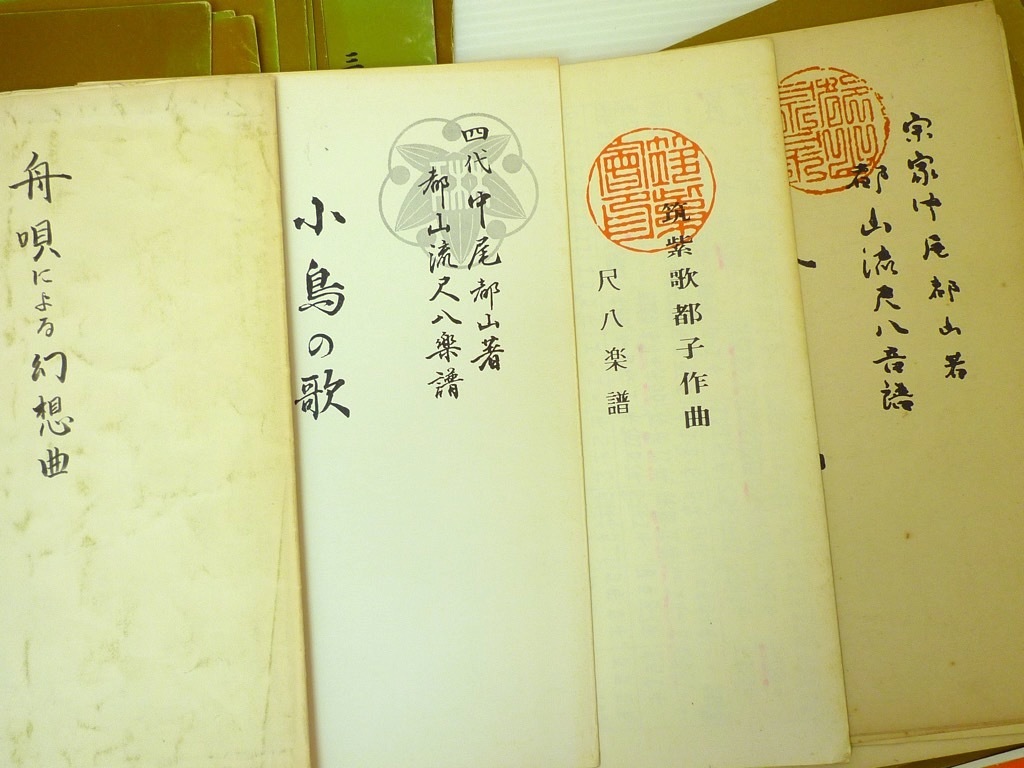 三
舟唄による幻想曲
四代中尾都山著
都山流尺八楽譜
小鳥の歌
筑紫歌都子作曲
尺八楽譜
宗家中尾都山著
都山流尺八音譜